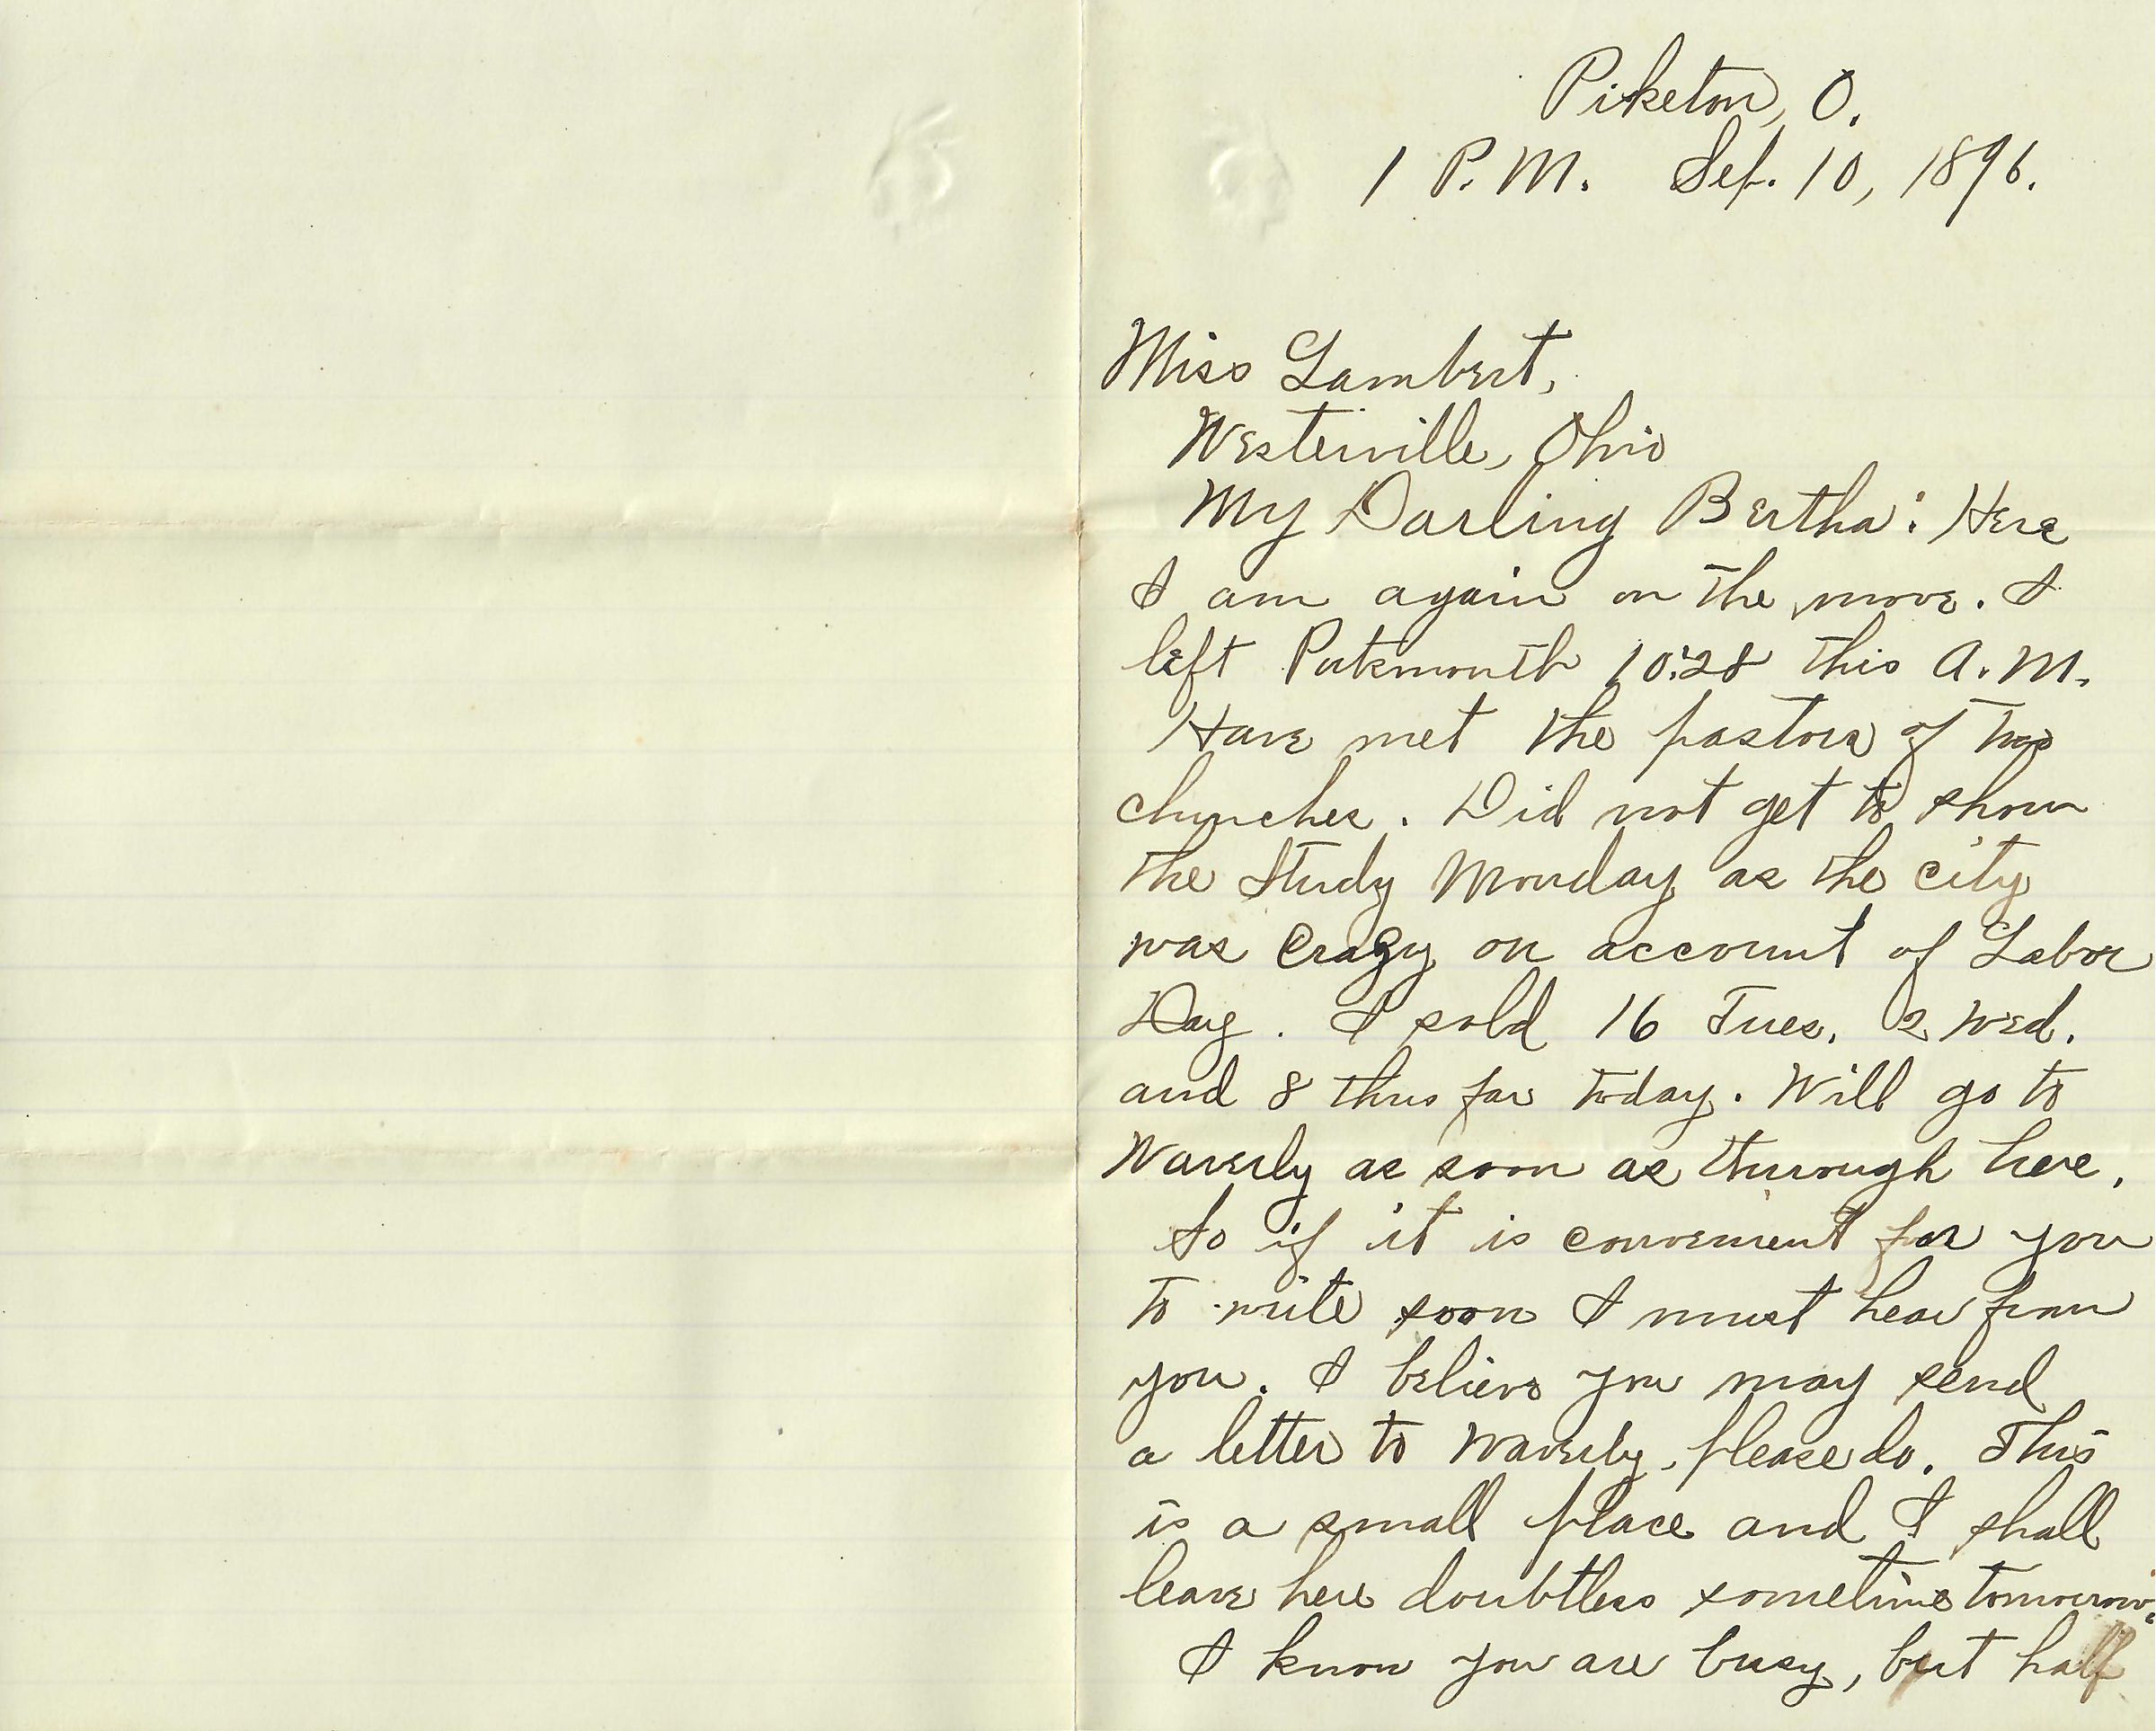 Piketon, O.
1 P.M. Sep. 10, 1896.
Miss Lambert,
Westerville, Ohio
My Darling Bertha: Here
I am again on the move. I
left Portsmouth 10:28 this A.M.
Have met the pastors of two
churches. Did not get to show
the Study Monday as the city
was crazy on account of Labor
Day. I sold 16 Tues. 2 Wed.
and 8 thus far today. Will go to
Waverly as soon as through here.
So if it is convenient for you
to write soon I must hear from
you. I believe you may send
a letter to Waverly, please do. This
is a small place and I shall
leave here doubtless sometime tomorrow.
I know you are busy, but half